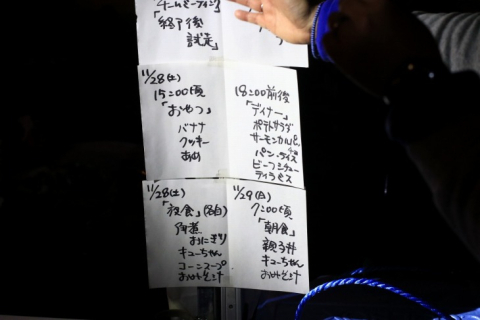 チームミーティング
「終了後
試走」
11/28(土)
15:00頃
「おやつ」
バナナ
クッキー
あめ
18:00前後
「ディナー」
ポテトサラダ
サーモンカルパ
パン・ライス
ビーフシチュー
ティラミス
11/28(土)
「夜食」(各自)
角煮
おにぎり
キューちゃん
コーンスープ
おみそ汁
11/29(日)
7:00頃
「朝食」
親子丼
キューちゃん
おみそ汁